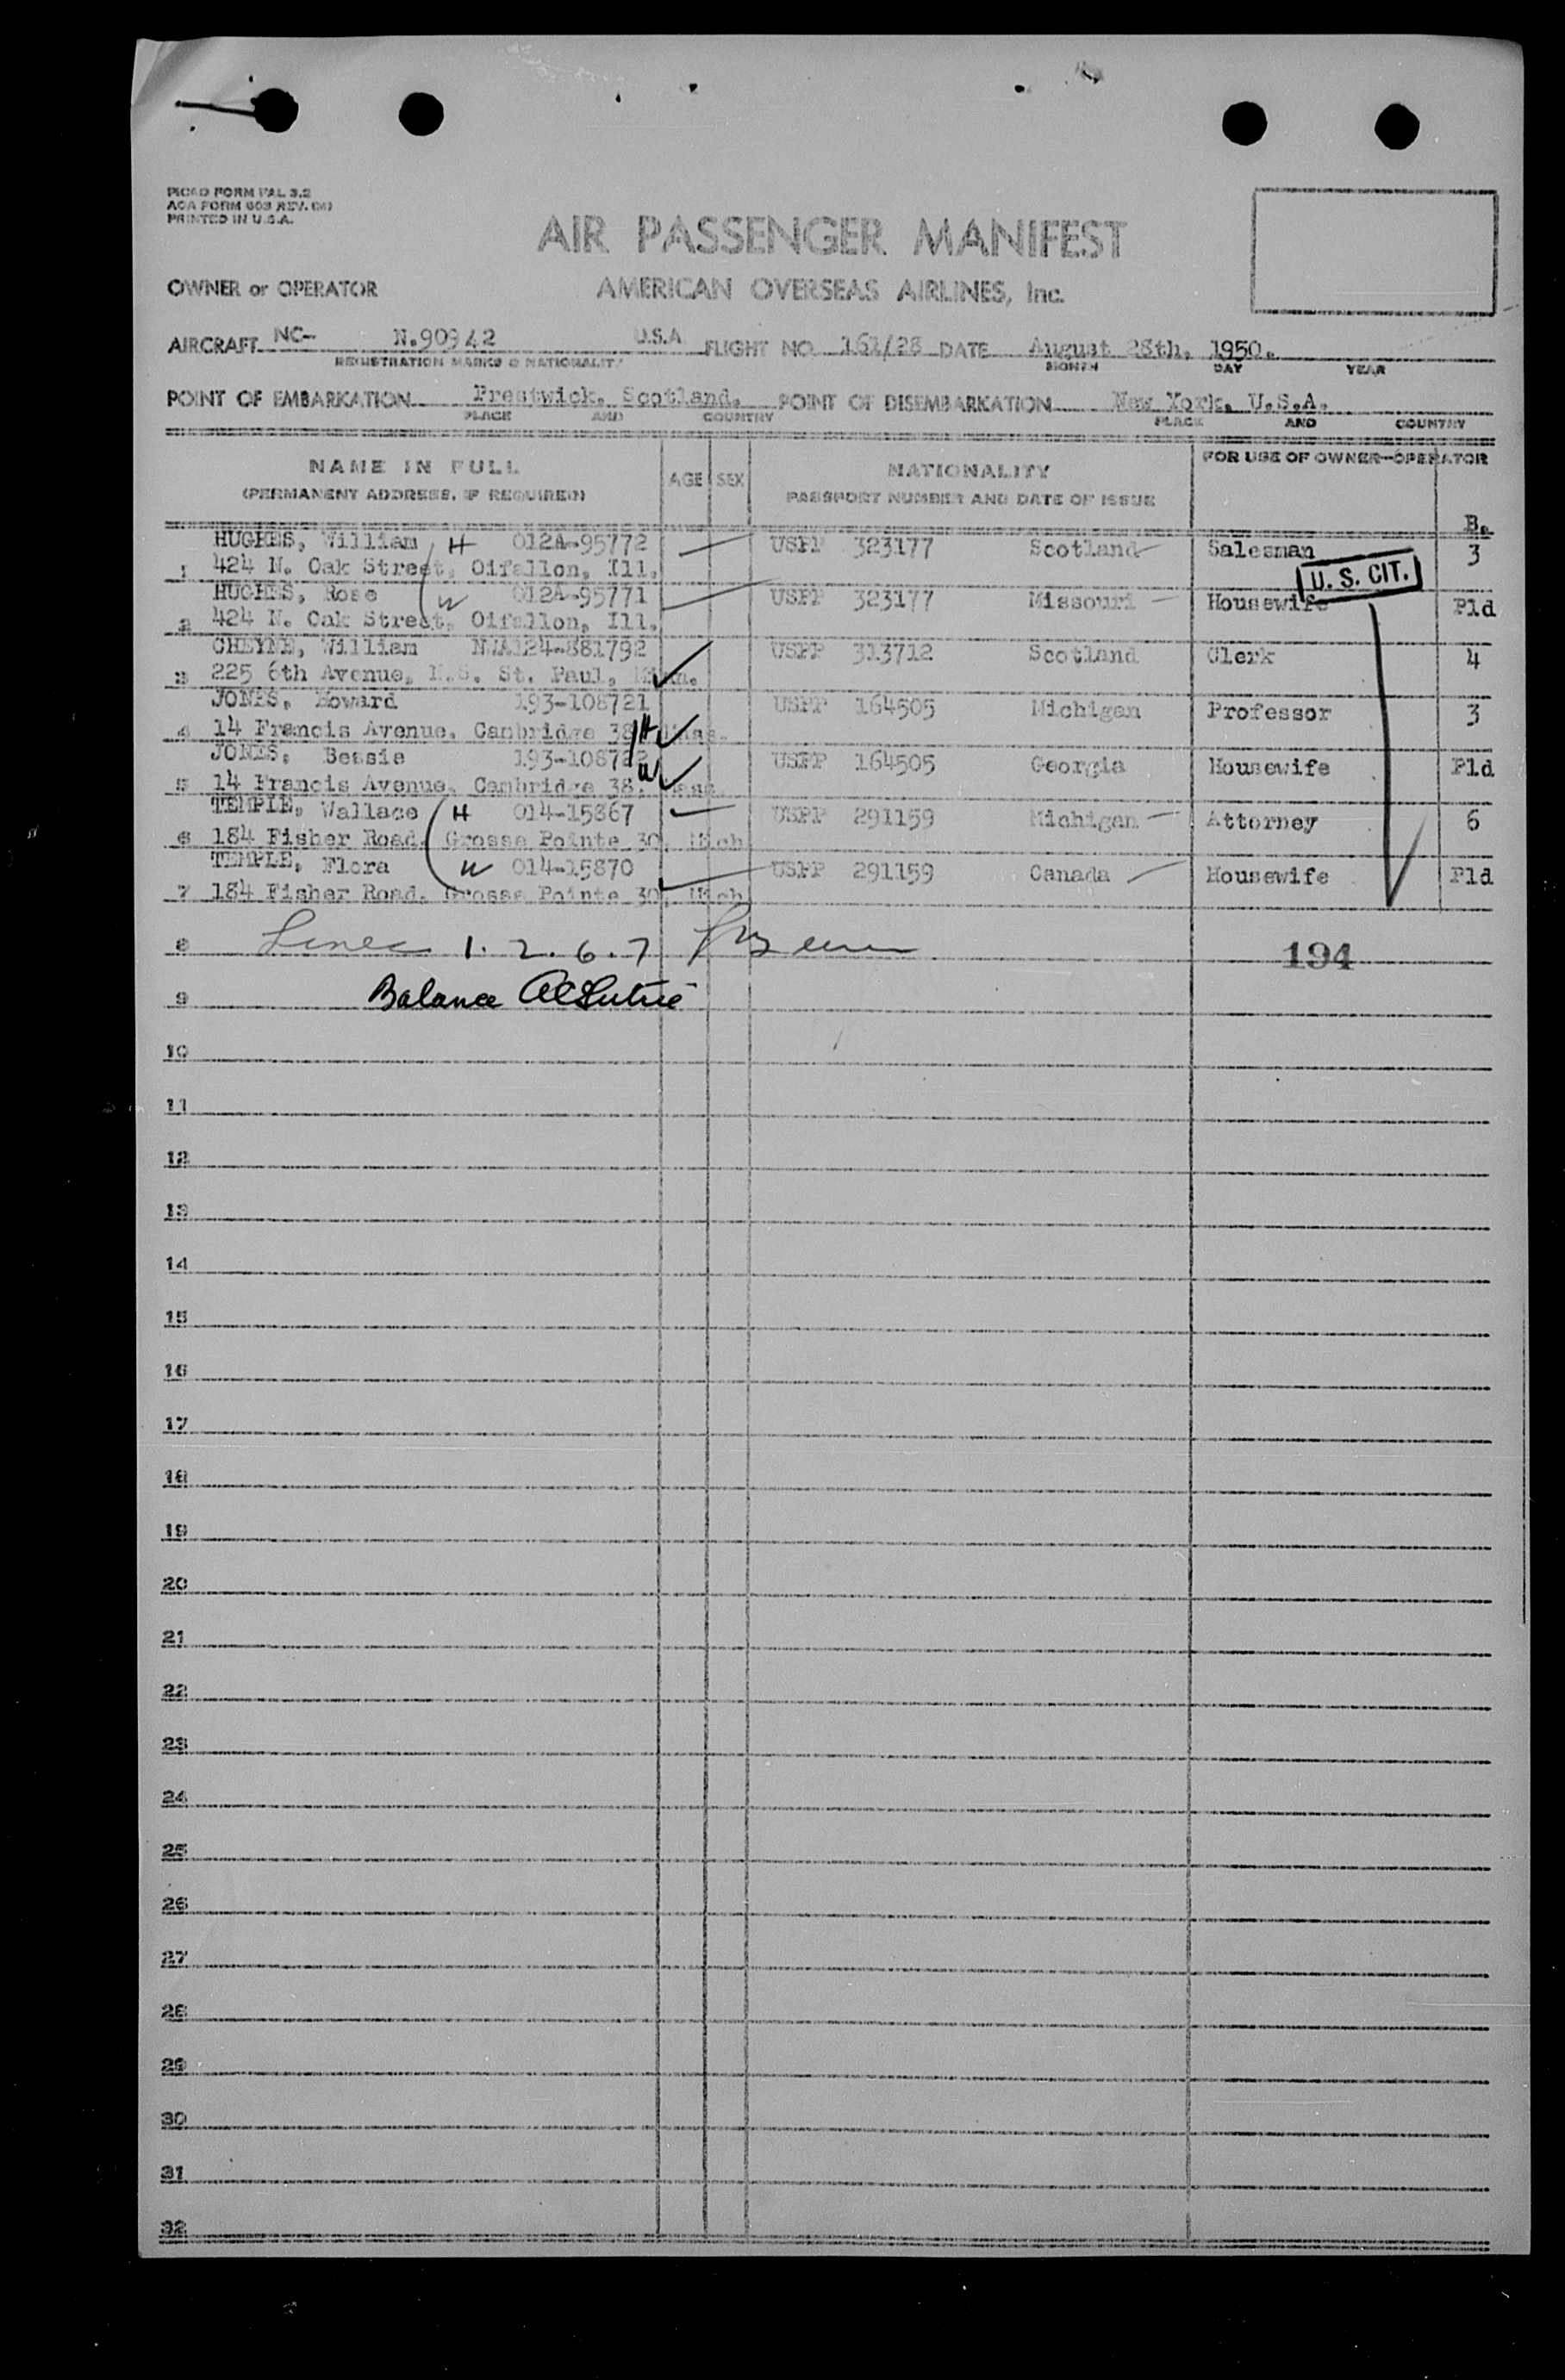 PICAO FORM PAL 3.2
AOA FORM 603 REV.
PRINTED IN U.S.A.
AIR PASSENGER MANIFEST
OWNER or OPERATOR AMERICAN OVERSEAS AIRLINES, Inc.
AIRCRAFT NC- N.90942 U.S.A FLIGHT NO. 161/28 DATE August 28th, 1950.
REGISTRATION MARKS & NATIONALITY MONTH DAY YEAR
POINT OF EMBARKATION Prestwick, Scotland. POINT OF DISEMBARKATION New York, U.S.A.
PLACE AND COUNTRY PLACE AND COUNTRY
NAME IN FULL AGE SEX NATIONALITY FOR USE OF OWNER-OPERATOR
(PERMANENT ADDRESS, IF REQUIRED) PASSPORT NUMBER AND DATE OF ISSUE
B.
HUGHES, William H 012A-95772 USPP 323177 Scotland Salesman 3
1 424 N. Oak Street, Oifallon, Ill.
U. S. CIT.
HUGHES, Rose W 012A-95771 USPP 323177 Missouri Housewife Pld
2 424 N. Oak Street, Oifallon, Ill.
CHEYNE, William NWA124-881792 USPP 313712 Scotland Clerk 4
3 225 6th Avenue, N.S. St. Paul, Minn.
JONES, Howard 193-108721 USPP 164505 Michigan Professor 3
4 14 Francis Avenue, Cambridge 38 H Mass.
JONES, Bessie 193-108722 W USPP 164505 Georgia Housewife Pld
5 14 Francis Avenue, Cambridge 38, Mass.
TEMPLE, Wallace H 014-15867 USPP 291159 Michigan Attorney 6
6 184 Fisher Road, Grosse Pointe 30, Mich
TEMPLE, Flora W 014-15870 USPP 291159 Canada Housewife Pld
7 184 Fisher Road, Grosse Pointe 30, Mich
8 Lines 1. 2. 6. 7 194
9 Balance
10
11
12
13
14
15
16
17
18
19
20
21
22
23
24
25
26
27
28
29
30
31
32